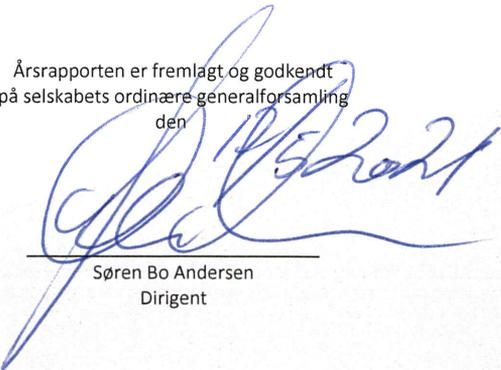 Årsrapporten er fremlagt og godkendt
på selskabets ordinære generalforsamling
den
/5 2021
Søren Bo Andersen
Dirigent